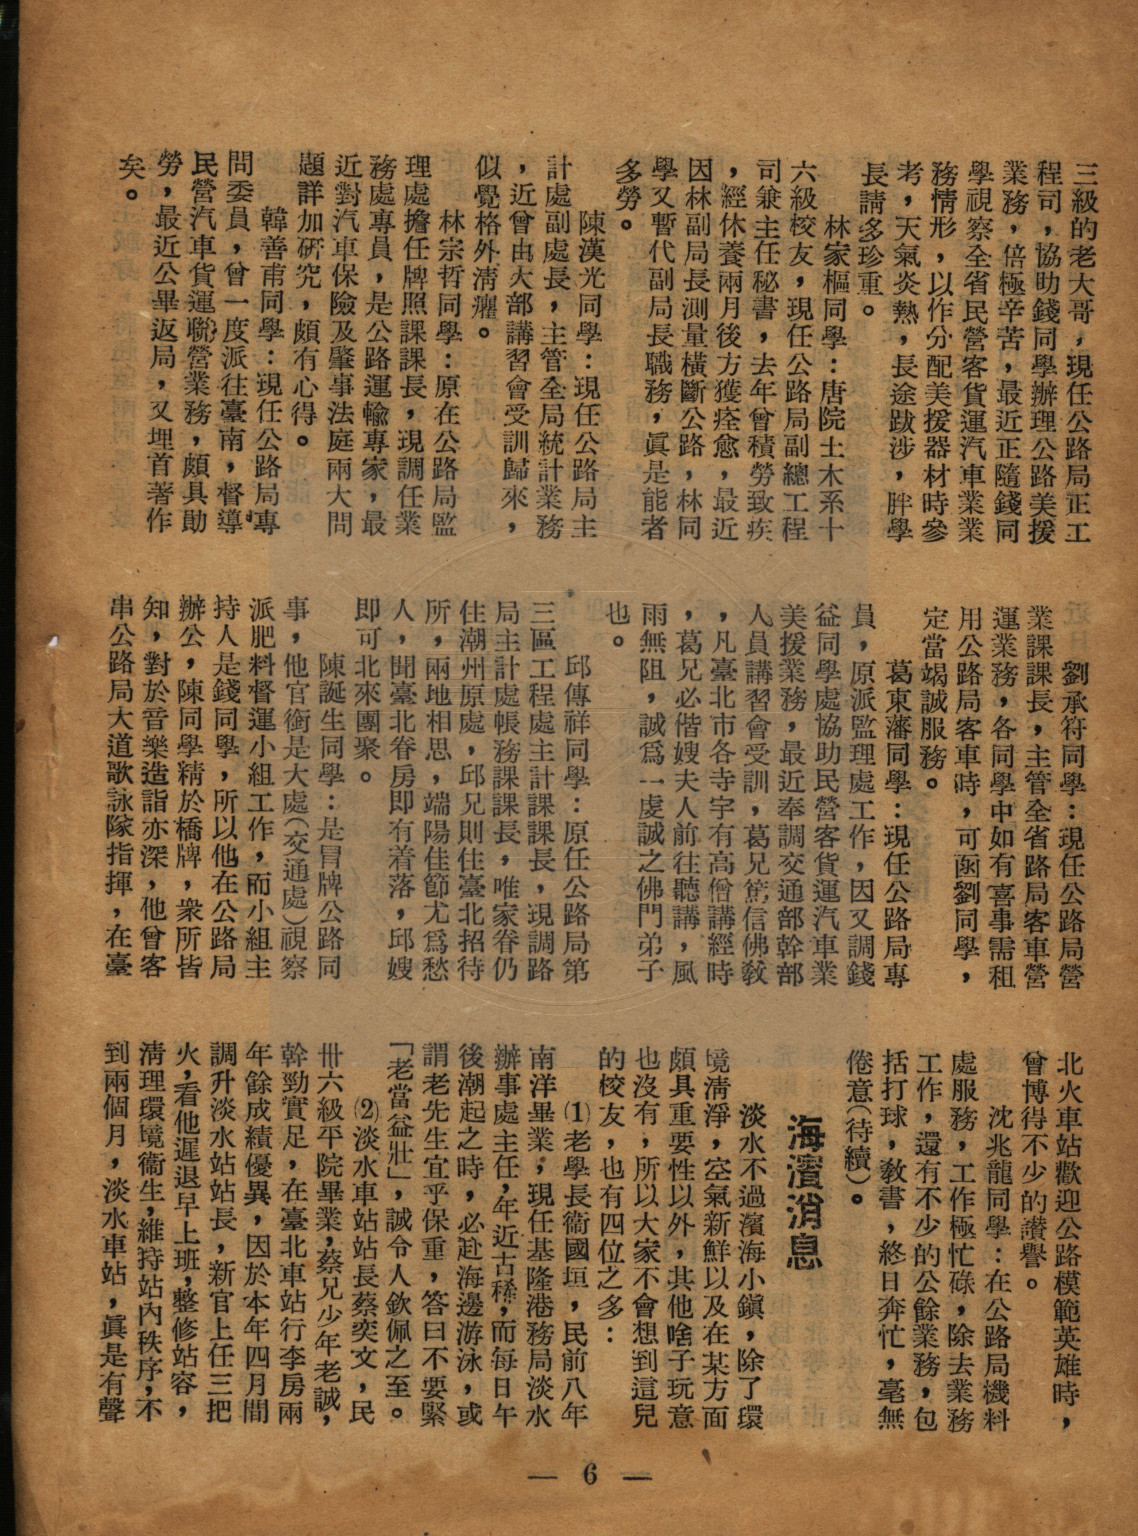 三級的老大哥，現任公路局正工
程司，協助錢同學辦理公路美援
業務，倍極辛苦，最近正隨錢同
學視察全省民營客貨運汽車業業
務情形，以作分配美援器材時參
考，天氣炎熱，長途跋涉，胖學
長請多珍重。
林家樞同學：唐院土木系十
六級校友，現任公路局副總工程
司兼主任秘書，去年曾積勞致疾
，經休養兩月後方獲痊愈，最近
因林副局長測量橫斷公路，林同
學又暫代副局長職務，眞是能者
多勞。
陳漢光同學：現任公路局主
計處副處長，主管全局統計業務
，近曾由大部講習會受訓歸來，
似覺格外淸癯。
林宗哲同學：原在公路局監
理處擔任牌照課課長，現調任業
務處專員，是公路運輸專家，最
近對汽車保險及肇事法庭兩大問
題詳加研究，頗有心得。
韓善甫同學：現任公路局專
門委員，曾一度派往臺南，督導
民營汽車貨運聯營業務，頗具勛
勞，最近公畢返局，又埋首著作
矣。
劉承符同學：現任公路局營
業課課長，主管全省路局客車營
運業務，各同學中如有喜事需租
用公路局客車時，可函劉同學，
定當竭誠服務。
葛東藩同學：現任公路局專
員，原派監理處工作，因又調錢
益同學處協助民營客貨運汽車業
美援業務，最近奉調交通部幹部
人員講習會受訓，葛兄篤信佛敎
，凡臺北市各寺宇有高僧講經時
，葛兄必偕嫂夫人前往聽講，風
雨無阻，誠爲一虔誠之佛門弟子
也。
邱傳祥同學：原任公路局第
三區工程處主計課課長，現調路
局主計處帳務課課長，唯家眷仍
住潮州原處，邱兄則住臺北招待
所，兩地相思，端陽佳節尤爲愁
人，聞臺北眷房即有着落，邱嫂
即可北來團聚。
陳誕生同學：是冒牌公路同
事，他官銜是大處（交通處）視察
派肥料督運小組工作，而小組主
持人是錢同學，所以他在公路局
辦公，陳同學精於橋牌，衆所皆
知，對於音樂造詣亦深，他曾客
串公路局大道歌詠隊指揮，在臺
北火車站歡迎公路模範英雄時，
曾博得不少的讚譽。
沈兆龍同學：在公路局機料
處服務，工作極忙碌，除去業務
工作，還有不少的公餘業務，包
括打球，敎書，終日奔忙，毫無
倦意（待續）。
海濱消息
淡水不過濱海小鎭，除了環
境淸淨，空氣新鮮以及在某方面
頗具重要性以外，其他啥子玩意
也沒有，所以大家不會想到這兒
的校友，也有四位之多：
(1)老學長衞國垣，民前八年
南洋畢業，現任基隆港務局淡水
辦事處主任，年近古稀，而每日午
後潮起之時，必赴海邊游泳，或
謂老先生宜乎保重，答曰不要緊
「老當益壯」，誠令人欽佩之至。
(2)淡水車站站長蔡奕文，民
卅六級平院畢業，蔡兄少年老誠，
幹勁實足，在臺北車站行李房兩
年餘成績優異，因於本年四月間
調升淡水站站長，新官上任三把
火，看他遲退早上班，整修站容，
淸理環境衞生，維持站內秩序，不
到兩個月，淡水車站，眞是有聲
— 6 —